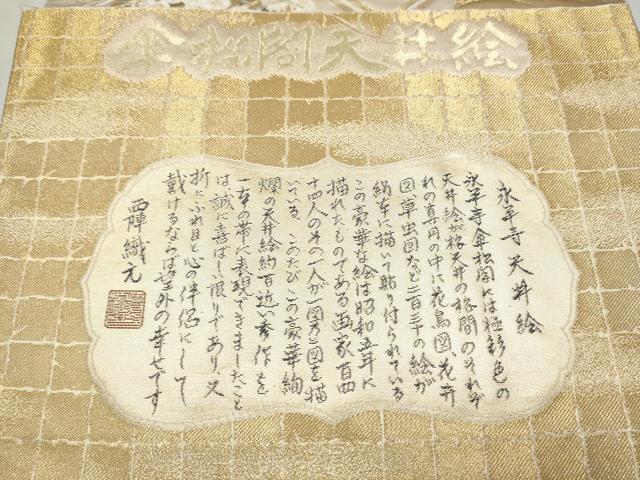 傘松閣天井絵
永平寺天井絵
永平寺傘松閣には極彩色の
天井絵が格天井の格間のそれぞ
れの真円の中に花鳥図、花卉
図草虫図など二百三十の絵が
絹本に描いて貼り付られている
この豪華な絵は昭和五年に
描れたものである画家百四
十四人のその一人が一図乃二図を描
いている このたびこの豪華絢
爛の天井絵約百近い秀作を
一本の帯に表現できましたこと
は誠に喜ばしい限りであり又
折にふれ目と心の伴侶にして
戴けるならば望外の幸せです
西陣織元